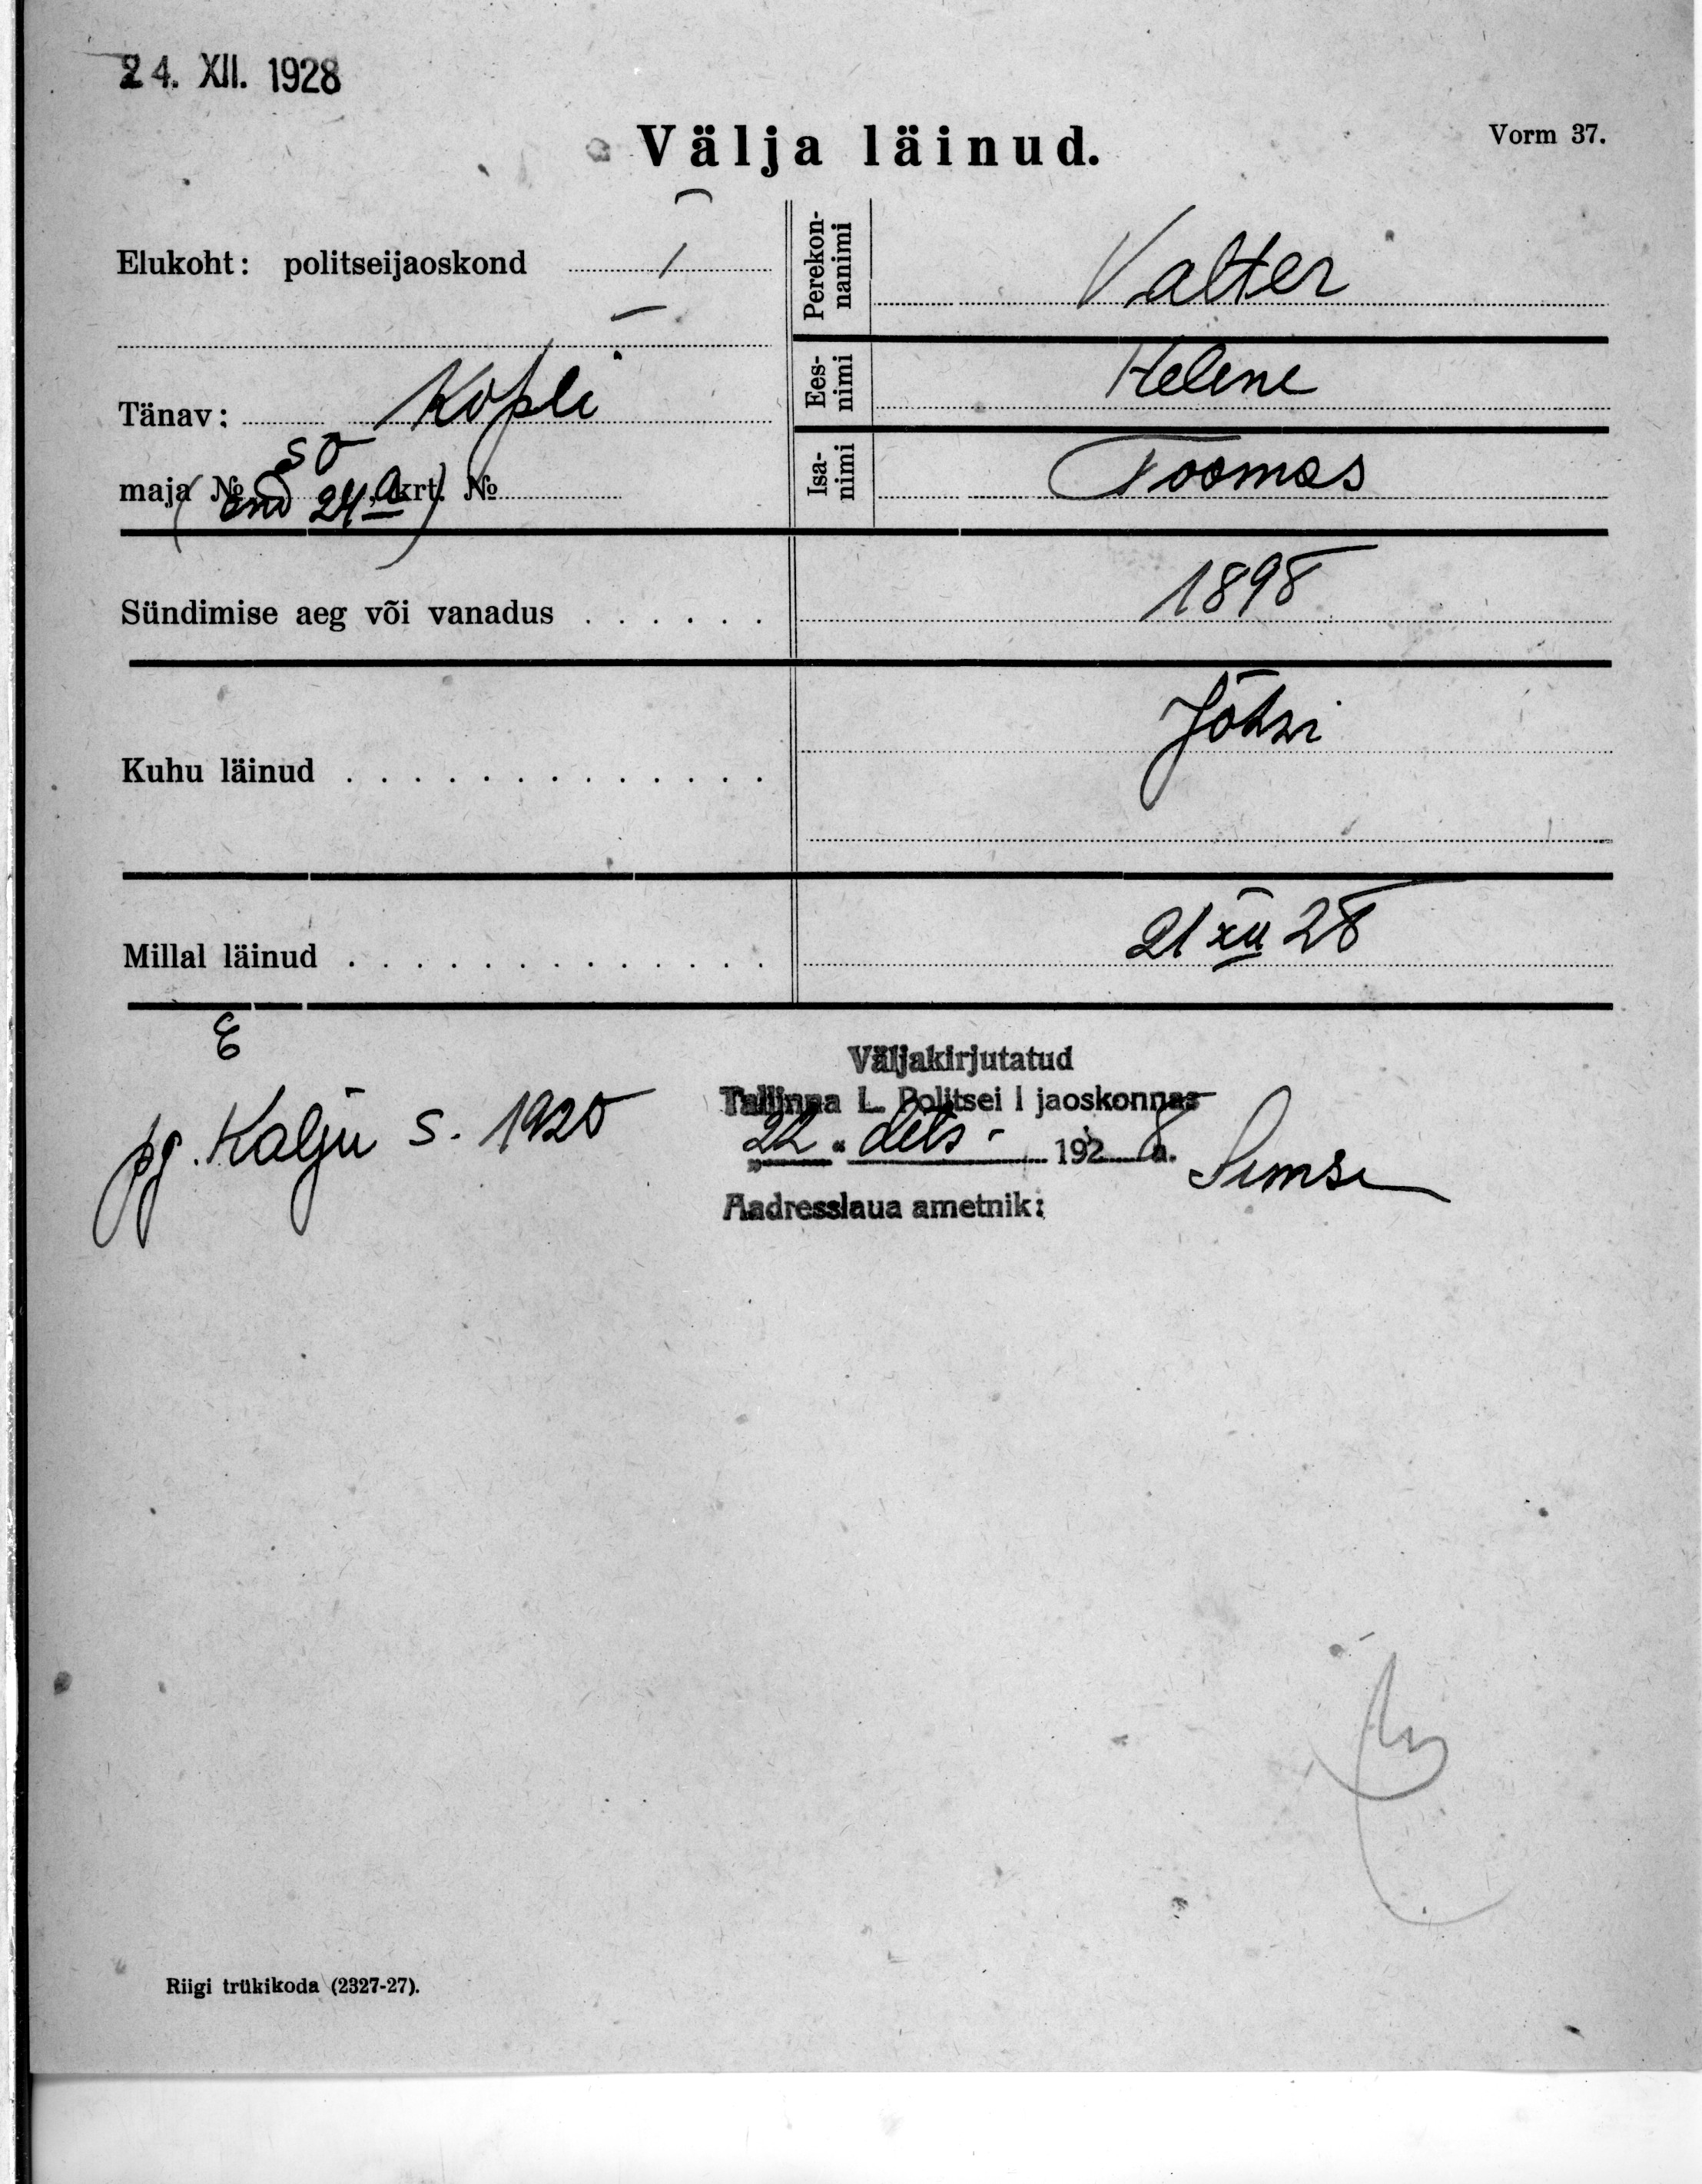 24. XII. 1928
Välja läinud.
Vorm 37.
Elukoht: politseijaoskond I
Perekon-
nanimi
Valter
Tänav: Kopli
Ees-
nimi
Helene
50
maja № krt. №
(end 24a)
Isa-
nimi
Toomas
Sündimise aeg või vanadus . . . . . . 1898
Kuhu läinud . . . . . . . . . . . . . Jõhvi
Millal läinud . . . . . . . . . . . . . 21 XII 28
E
pg. Kalju s. 1920
Väljakirjutatud
Tallinna L. Politsei I jaoskonnas
„22“ dets- 1928 a.
Aadresslaua ametnik:
Riigi trükikoda (2327-27).